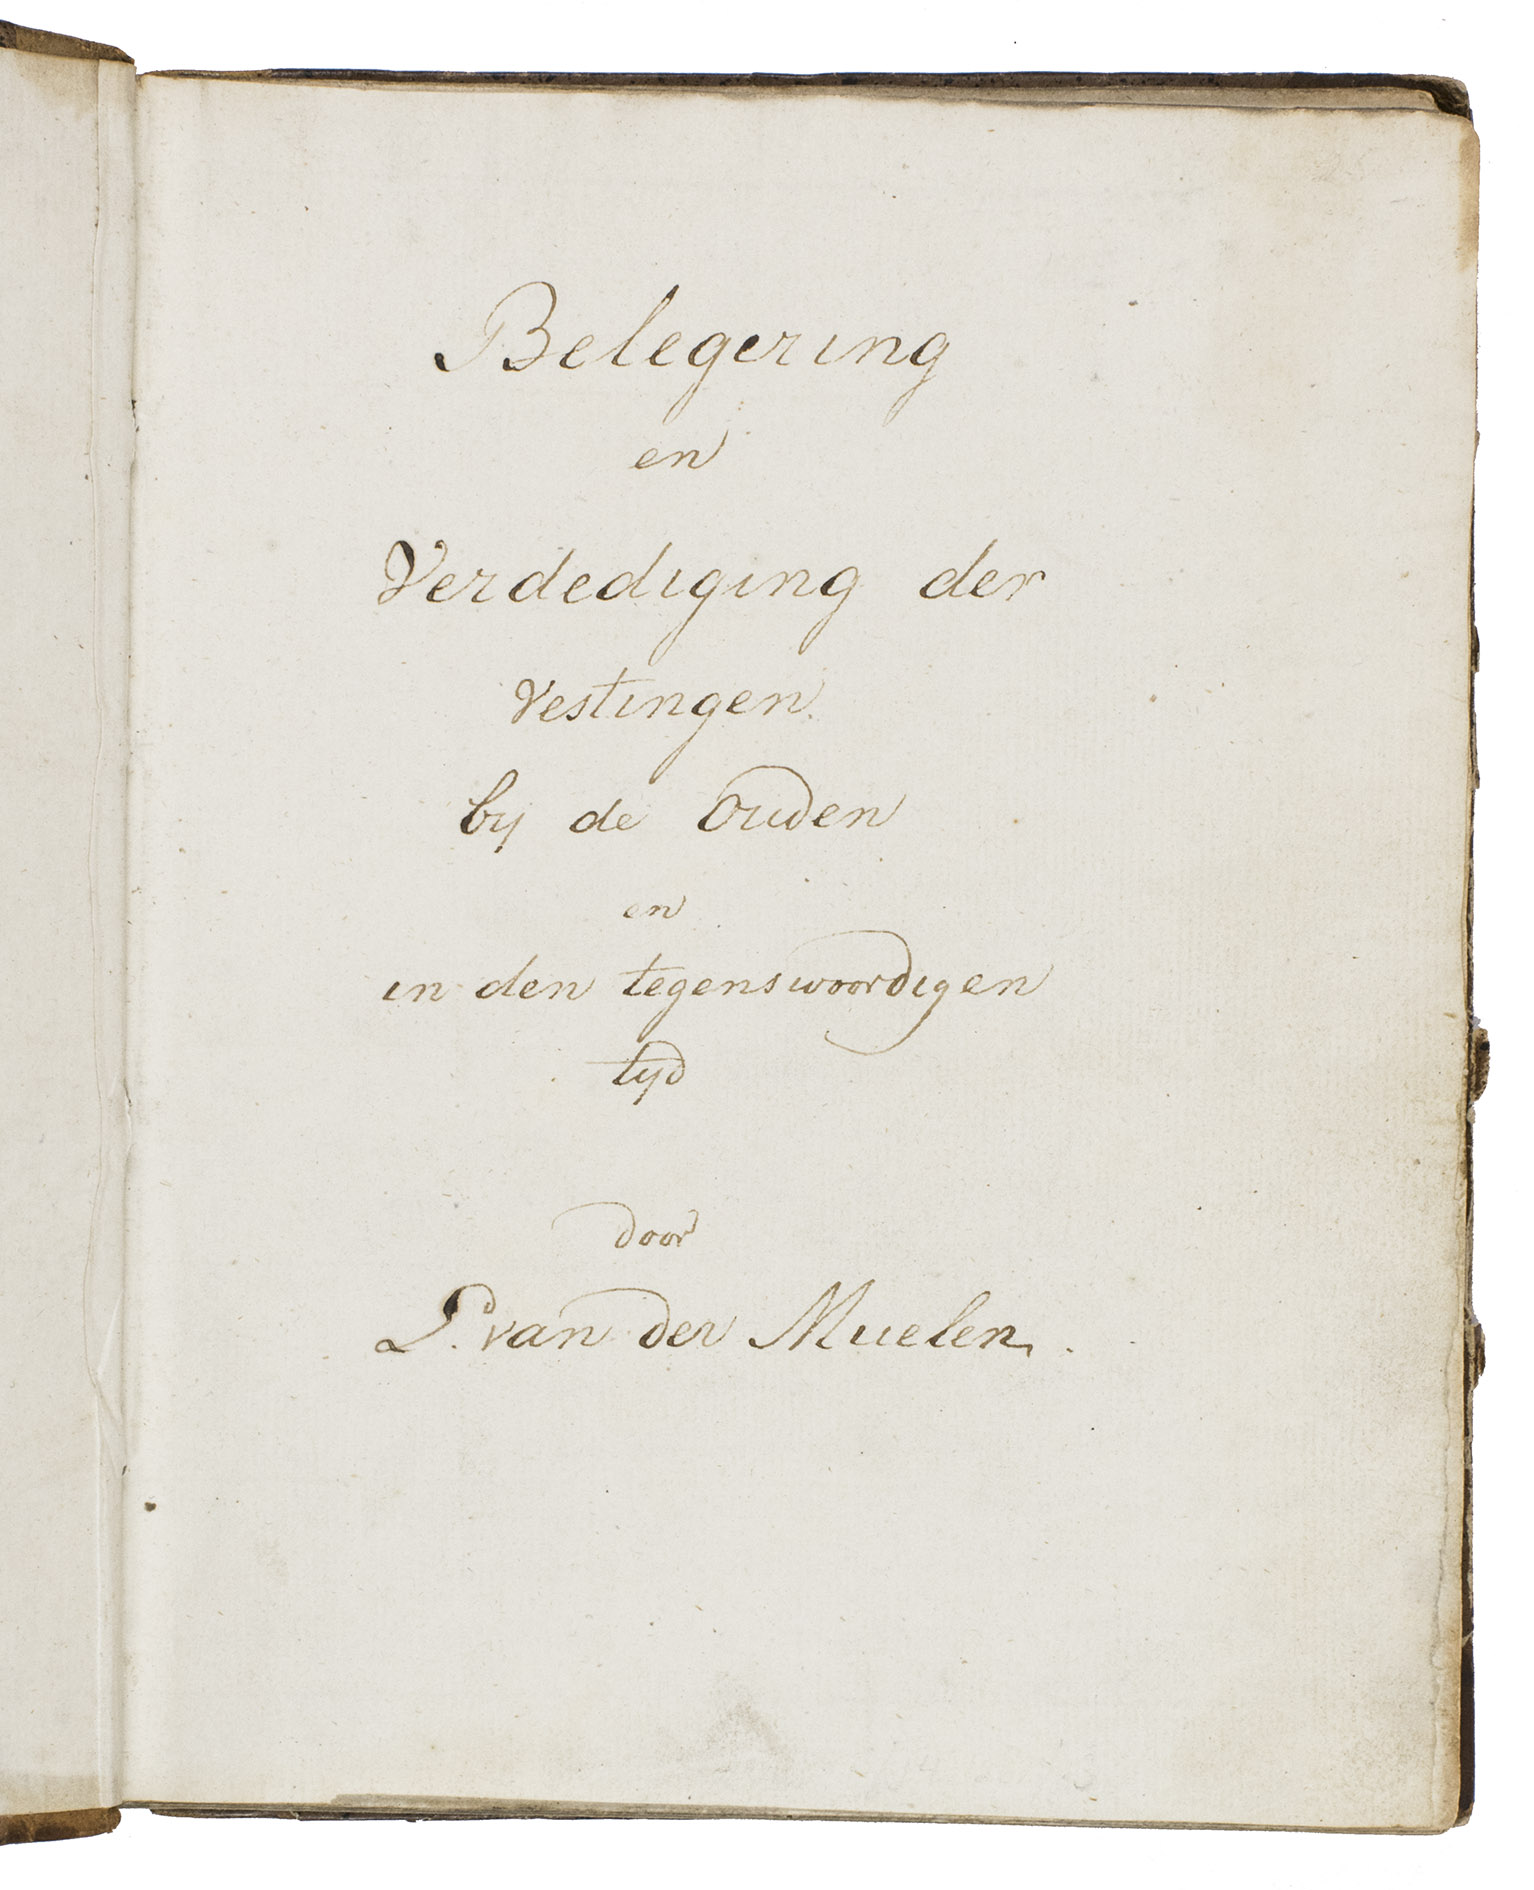 Belegering
en
Verdediging der
Vestingen
by de Ouden
en
in den tegenswoordigen
tyd
door
P. van der Muelen.